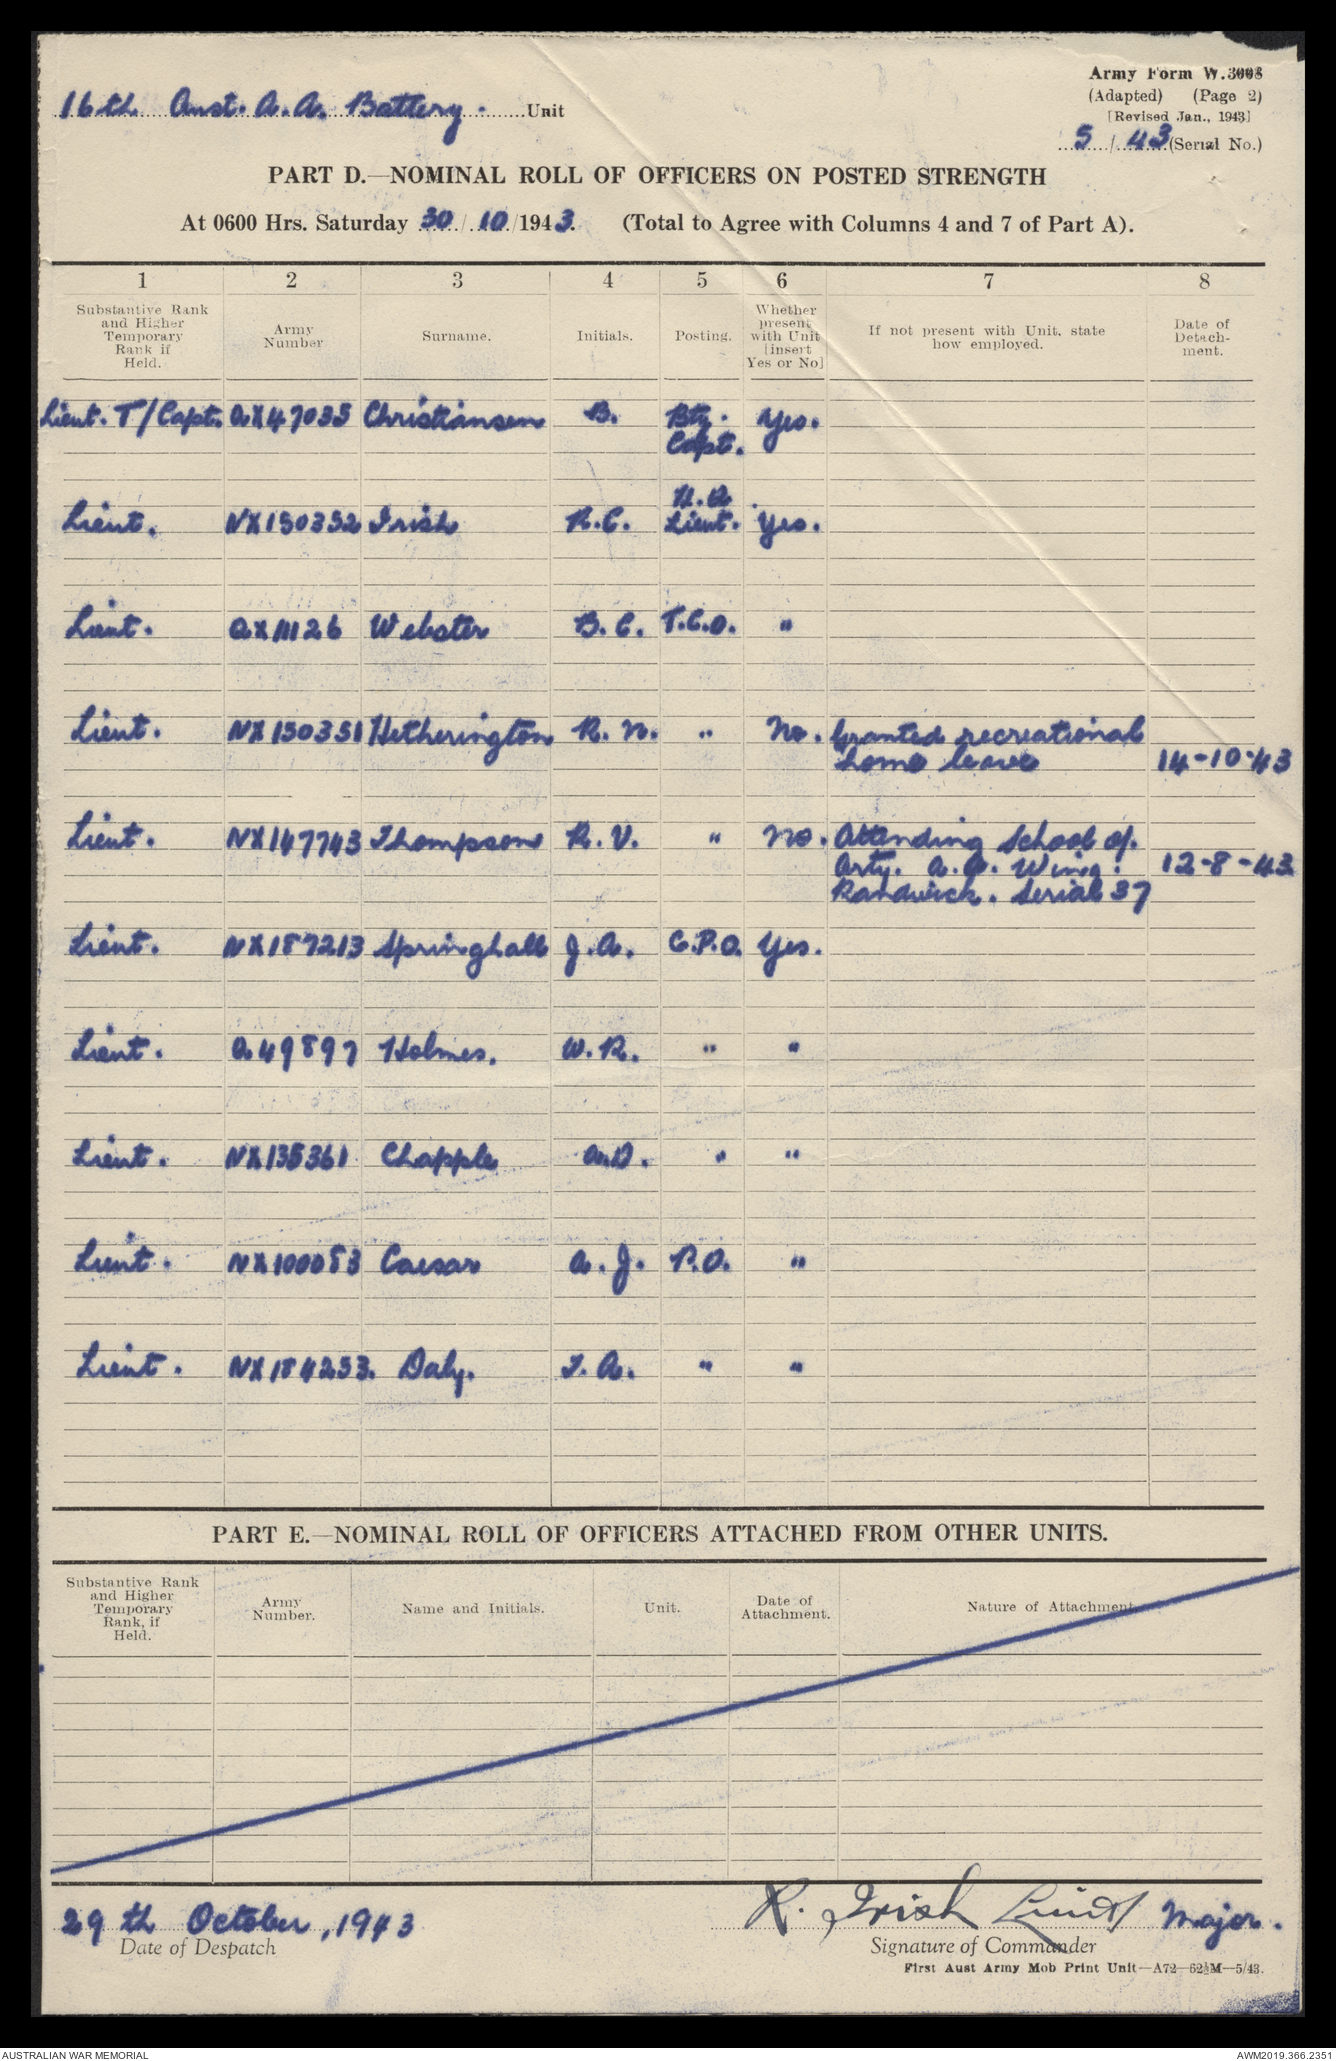 Army Form W.3008
(Adapted) (Page 2)
[Revised Jan., 1943]
16th Aust. A.A. Battery. Unit
5/43 (Serial No.)
PART D.—NOMINAL ROLL OF OFFICERS ON POSTED STRENGTH
At 0600 Hrs. Saturday 30/10/1943. (Total to Agree with Columns 4 and 7 of Part A).
1 2 3 4 5 6 7 8
Substantive Rank and Higher Temporary Rank if Held.
Army Number
Surname.
Initials.
Posting.
Whether present with Unit [insert Yes or No]
If not present with Unit, state how employed.
Date of Detachment.
Lieut. T/Capt. QX47035 Christiansen B. Bty. Capt. Yes.
Lieut. NX150352 Irish R.C. H.Q. Lieut. Yes.
Lieut. QX11126 Webster B.C. T.C.O. "
Lieut. NX150351 Hetherington R.N. " No. Granted recreational home leave 14-10-43
Lieut. NX147743 Thompson R.V. " No. Attending School of Arty. A.A. Wing. Randwick. Serial 37 12-8-43
Lieut. NX187213 Springhall J.A. G.P.O. Yes.
Lieut. Q49897 Holmes. W.R. " "
Lieut. NX135361 Chapple A.D. " "
Lieut. NX100083 Caesar A.J. P.O. "
Lieut. NX184253. Daly. T.A. " "
PART E.—NOMINAL ROLL OF OFFICERS ATTACHED FROM OTHER UNITS.
Substantive Rank and Higher Temporary Rank, if Held.
Army Number.
Name and Initials.
Unit.
Date of Attachment.
Nature of Attachment
29th October, 1943
Date of Despatch
R. Irish Lieut Major.
Signature of Commander
First Aust Army Mob Print Unit—A72—62½M—5/43.
AUSTRALIAN WAR MEMORIAL
AWM2019.366.2351